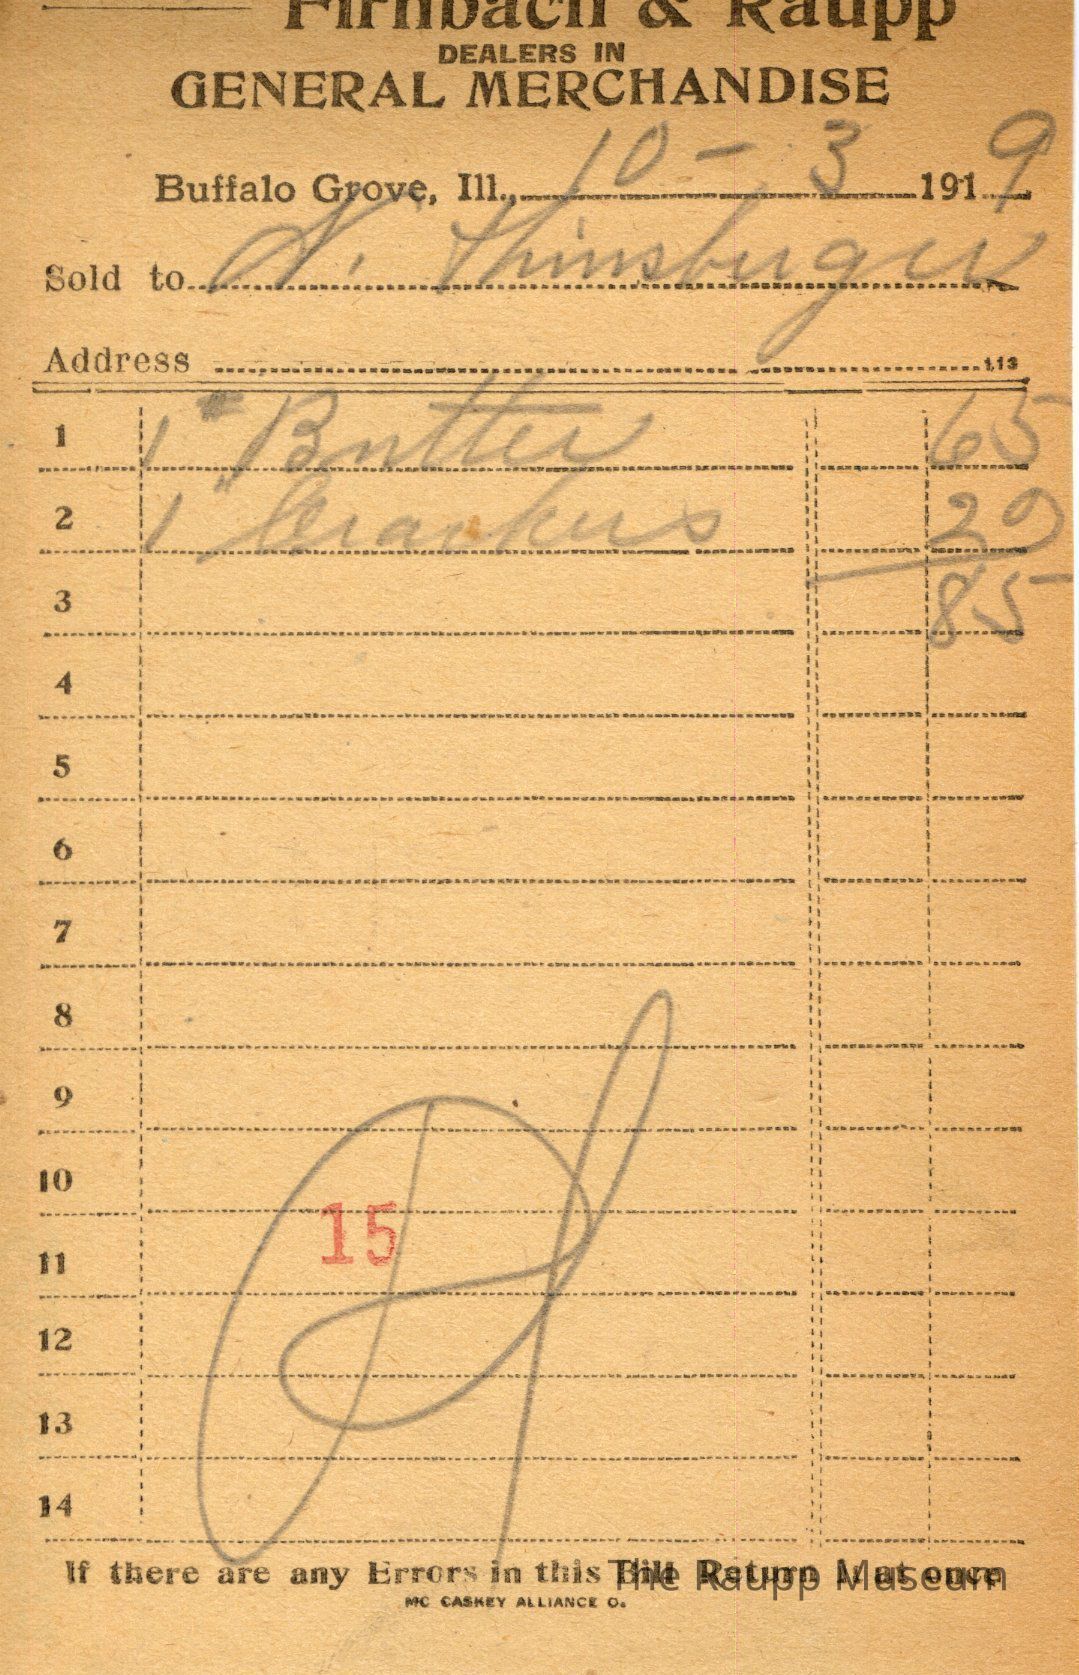 Firnbach & Raupp
DEALERS IN
GENERAL MERCHANDISE
Buffalo Grove, Ill., 10 - 3 1919
Sold to
Address 113
1 1 # Butter 65
2 1 " Crackers 20
3 85
4
5
6
7
8
9
10
15
11
12
13
14
If there are any Errors in this Bill Return it at once
The Raupp Museum
MC CASKEY ALLIANCE O.